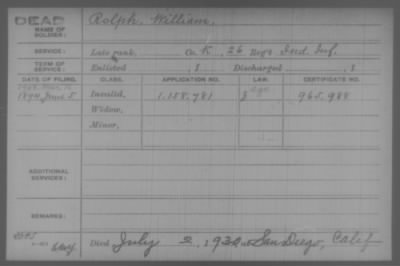 DEAD
NAME OF SOLDIER:
Rolph, William,
SERVICE:
Late rank, Co. K, 26 Reg't Ind. Inf.
TERM OF SERVICE:
Enlisted , 1 Discharged , 1
DATE OF FILING. CLASS. APPLICATION NO. LAW. CERTIFICATE NO.
1894 June 5 Invalid, 1.158.781 965.988
Widow,
Minor,
ADDITIONAL SERVICES:
REMARKS:
Died July 2, 1930 at San Diego, Calif